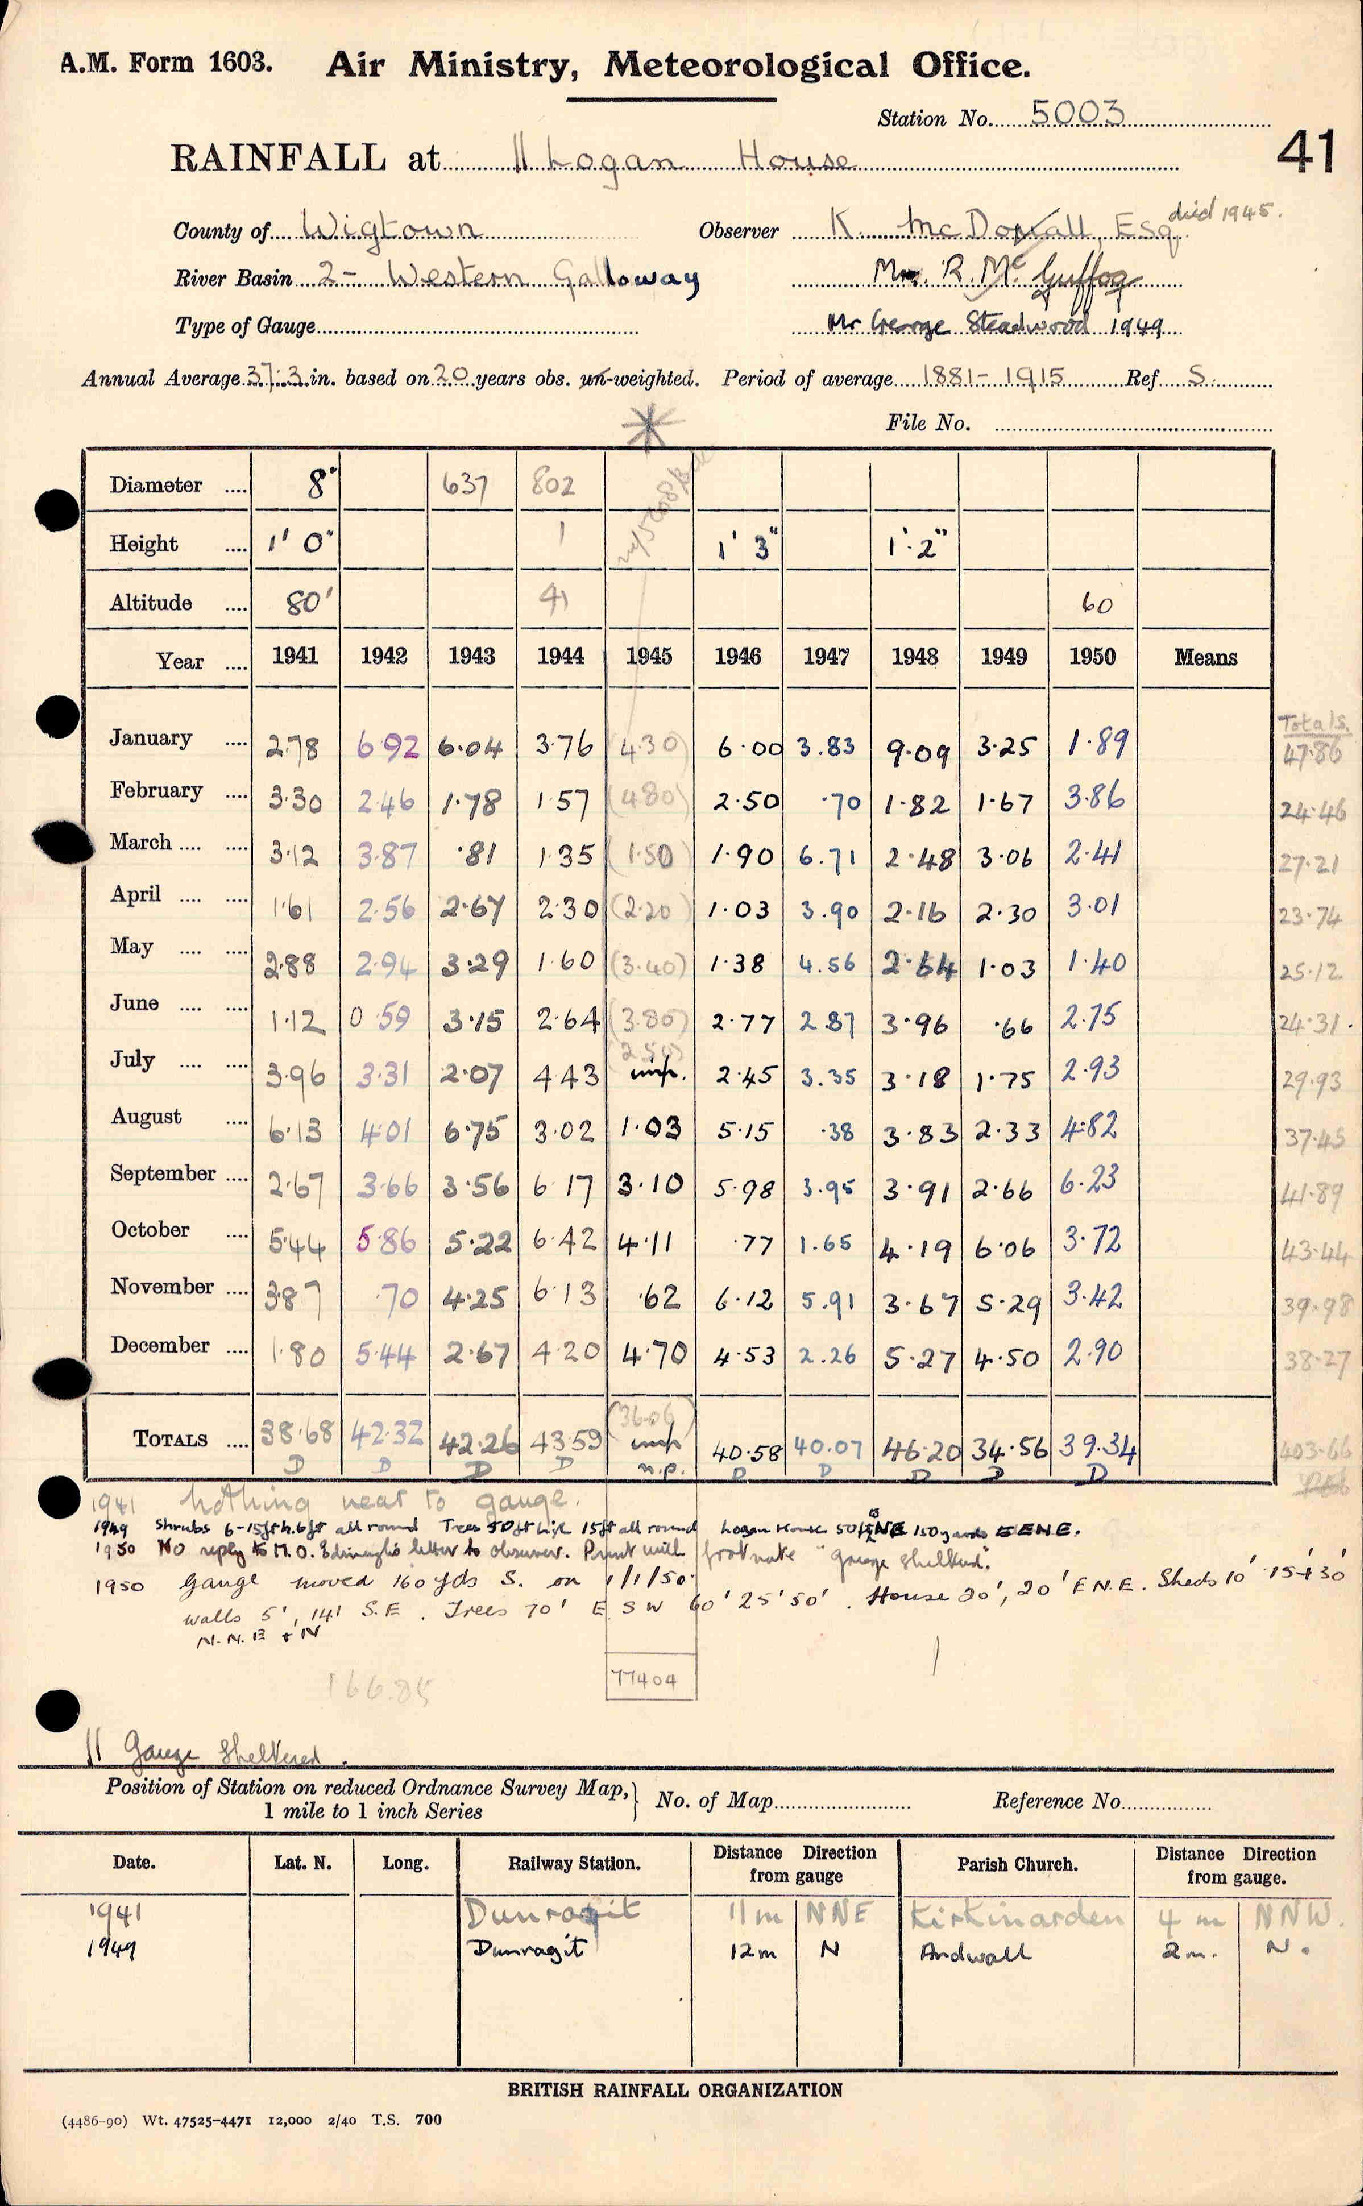 A.M. Form 1603. Air Ministry, Meteorological Office.
Station No. 5003
41
RAINFALL at || Logan House
died 1945.
County of Wigtown Observer K. McDouall, Esq.
River Basin 2 - Western Galloway Mr. R. Mc Guffog
Type of Gauge Mr George Steadwood 1949
Annual Average 37.3 in. based on 20 years obs. un-weighted. Period of average 1881-1915 Ref S.
File No.
Diameter .... 8" 637 802
Height .... 1' 0" 1 1' 3" 1' 2"
Altitude .... 80' 41 60
Year .... 1941 1942 1943 1944 1945 1946 1947 1948 1949 1950 Means
Totals.
January .... 2.78 6.92 6.04 3.76 (4.30) 6.00 3.83 9.09 3.25 1.89 47.86
February .... 3.30 2.46 1.78 1.57 (4.80) 2.50 .70 1.82 1.67 3.86 24.46
March .... .... 3.12 3.87 .81 1.35 (1.50) 1.90 6.71 2.48 3.06 2.41 27.21
April .... .... 1.61 2.56 2.67 2.30 (2.20) 1.03 3.90 2.16 2.30 3.01 23.74
May .... .... 2.88 2.94 3.29 1.60 (3.40) 1.38 4.56 2.64 1.03 1.40 25.12
June .... .... 1.12 0.59 3.15 2.64 (3.80) 2.77 2.87 3.96 .66 2.75 24.31
(2.50)
July .... .... 3.96 3.31 2.07 4.43 imp. 2.45 3.35 3.18 1.75 2.93 29.93
August .... 6.13 4.01 6.75 3.02 1.03 5.15 .38 3.83 2.33 4.82 37.45
September .... 2.67 3.66 3.56 6.17 3.10 5.98 3.95 3.91 2.66 6.23 41.89
October .... 5.44 5.86 5.22 6.42 4.11 .77 1.65 4.19 6.06 3.72 43.44
November .... 3.87 .70 4.25 6.13 .62 6.12 5.91 3.67 5.29 3.42 39.98
December .... 1.80 5.44 2.67 4.20 4.70 4.53 2.26 5.27 4.50 2.90 38.27
(36.06)
TOTALS .... 38.68 42.32 42.26 43.59 imp 40.58 40.07 46.20 34.56 39.34 403.66
D D D D n.p. D D D D D
1941 Nothing near to gauge.
1949 Shrubs 6-15ft h. 6ft all round Trees 50ft high 15ft all round Logan House 50ft 150 yards ENE.
1950 No reply to M.O. Edinburgh's letter to observer. Print with footnote "gauge sheltered".
1950 Gauge moved 160 yds S. on 1/1/50.
walls 5', 141 S.E. Trees 70' E S W 60' 25' 50'. House 30', 20' E.N.E. Sheds 10' 15' + 30'
N.N.E + N
166.85 77404
|| Gauge Sheltered.
Position of Station on reduced Ordnance Survey Map, } No. of Map Reference No.
1 mile to 1 inch Series
Date. Lat. N. Long. Railway Station. Distance from gauge Direction Parish Church. Distance from gauge. Direction
1941 Dunragit 11 m NNE Kirkinarden 4 m NNW.
1949 Dunragit 12 m N Andwall 2 m. N.
BRITISH RAINFALL ORGANIZATION
(4486-90) Wt. 47525-4471 12,000 2/40 T.S. 700